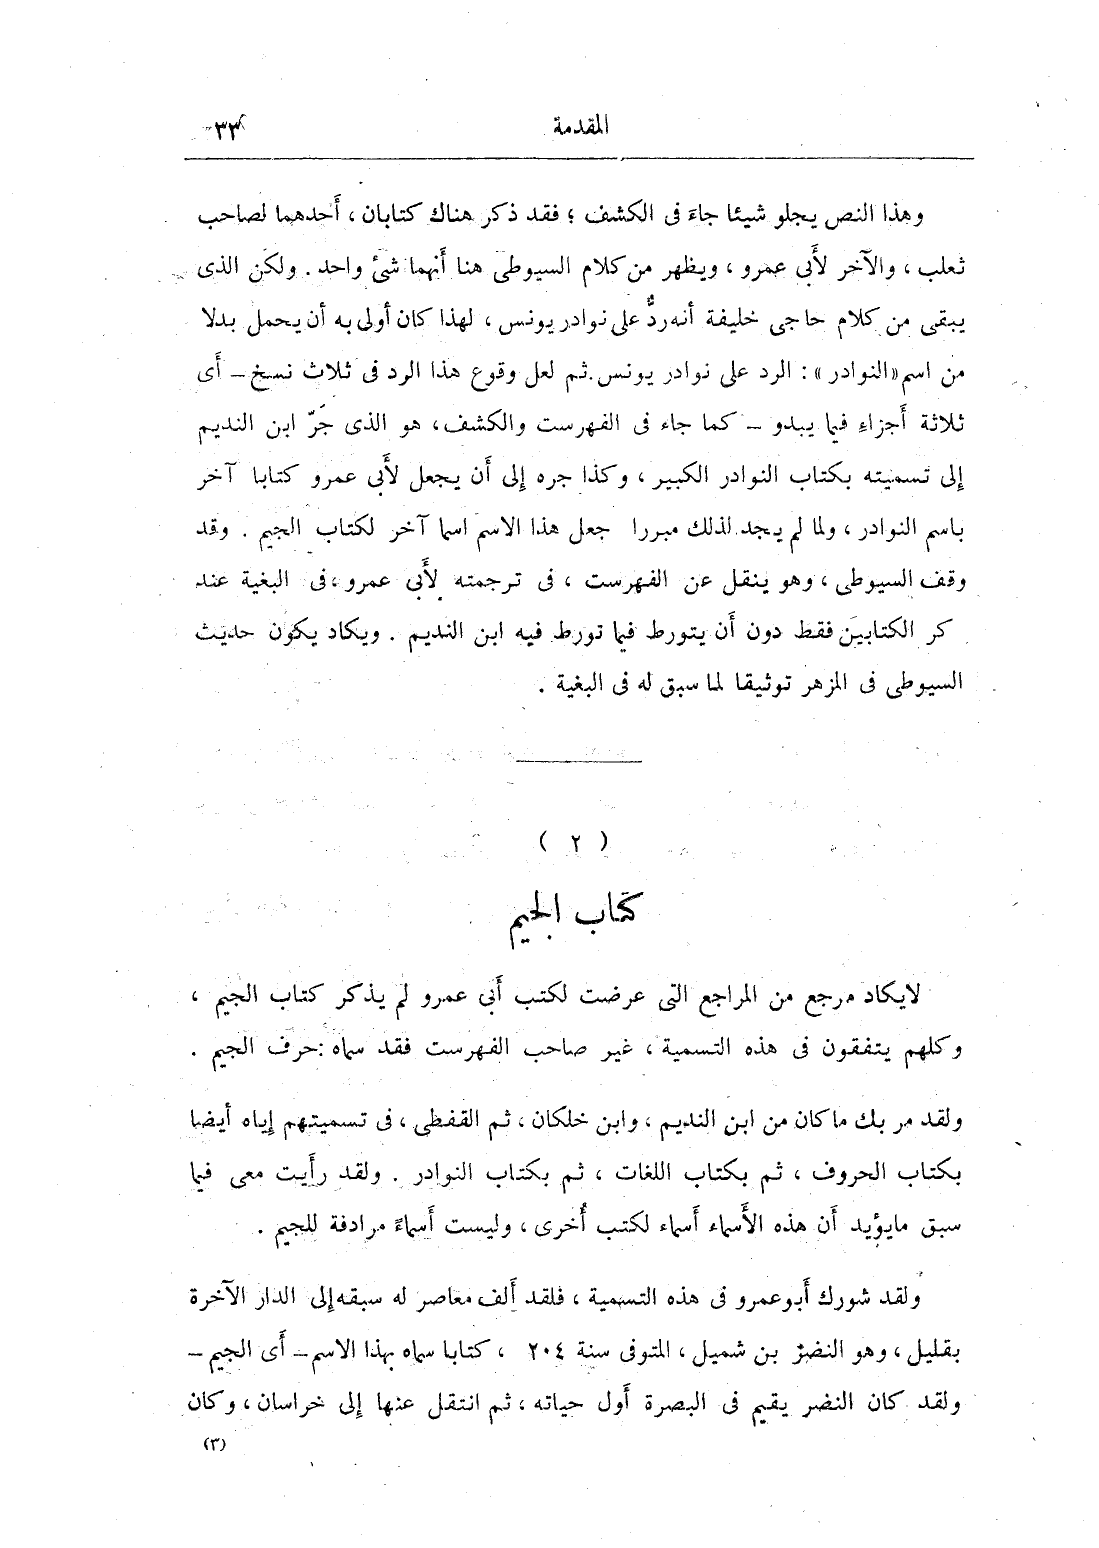 المقدمة ٣٣
وهذا النص يجلو شيئا جاءَ فى الكشف ؛ فقد ذكر هناك كتابان ، أَحدهما لصاحب
ثعلب ، والآخر لأَبى عمرو ، ويظهر من كلام السيوطى هنا أَنهما شىءٌ واحد . ولكن الذى
يبقى من كلام حاجى خليفة أنه ردٌّ على نوادر يونس ، لهذا كان أولى به أن يحمل بدلا
من اسم «النوادر» : الرد على نوادر يونس . ثم لعل وقوع هذا الرد فى ثلاث نسخ – أَى
ثلاثة أَجزاءِ فيما يبدو – كما جاء فى الفهرست والكشف ، هو الذى جَرّ ابن النديم
إلى تسميته بكتاب النوادر الكبير ، وكذا جره إلى أَن يجعل لأَبى عمرو كتابا آخر
باسم النوادر ، ولما لم يجد لذلك مبررا جعل هذا الاسم اسما آخر لكتاب الجيم . وقد
وقف السيوطى ، وهو ينقل عن الفهرست ، فى ترجمته لأَبى عمرو ، فى البغية عند
كر الكتابين فقط دون أَن يتورط فيما تورط فيه ابن النديم . ويكاد يكون حديث
السيوطى فى المزهر توثيقا لما سبق له فى البغية .
( ٢ )
كتاب الجيم
لايكاد مرجع من المراجع التى عرضت لكتب أَبى عمرو لم يذكر كتاب الجيم ،
وكلهم يتفقون فى هذه التسمية ، غير صاحب الفهرست فقد سماه : حرف الجيم .
ولقد مر بك ماكان من ابن النديم ، وابن خلكان ، ثم القفطى ، فى تسميتهم إياه أيضا
بكتاب الحروف ، ثم بكتاب اللغات ، ثم بكتاب النوادر . ولقد رأَيت معى فيما
سبق مايؤيد أَن هذه الأَسماء أَسماء لكتب أُخرى ، وليست أَسماءً مرادفة للجيم .
ولقد شورك أَبوعمرو فى هذه التسمية ، فلقد أَلف معاصر له سبقه إلى الدار الآخرة
بقليل ، وهو النضر بن شميل ، المتوفى سنة ٢٠٤ ، كتابا سماه بهذا الاسم – أَى الجيم –
ولقد كان النضر يقيم فى البصرة أَول حياته ، ثم انتقل عنها إلى خراسان ، وكان
(٣)